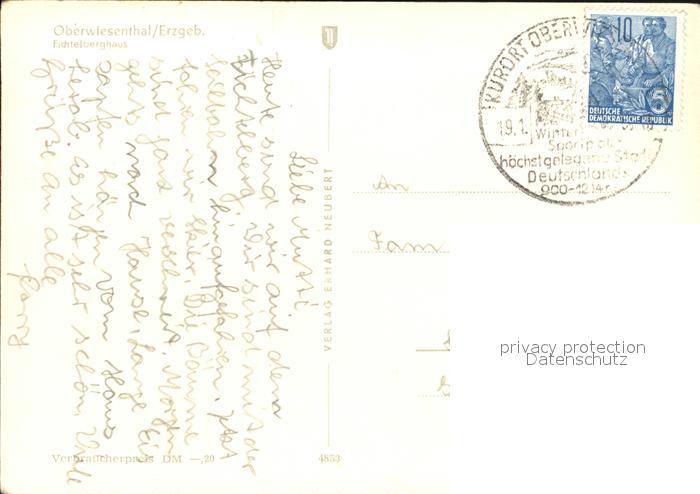 Oberwiesenthal/Erzgeb.
Fichtelberghaus
Liebe Mutti
Heute sind wir auf dem
Fichtelberg. Wir sind mit der
Seilbahn hinaufgefahren, jetzt
fahren wir Skier. Die Bäume
sind ganz verschneit. Morgen
gehts nach Hause. Lange Eis
zapfen hängen vom Haus
herab. Es ist sehr schön. Viele
Grüße an alle
VERLAG ERHARD NEUBERT
Verbraucherpreis DM —,20
4853
An
Fam
KURORT OBERWI
19.1.
Winter
Sportplatz
höchstgelegene Stadt
Deutschlands
900-1214
10
5
DEUTSCHE
DEMOKRATISCHE REPUBLIK
privacy protection
Datenschutz